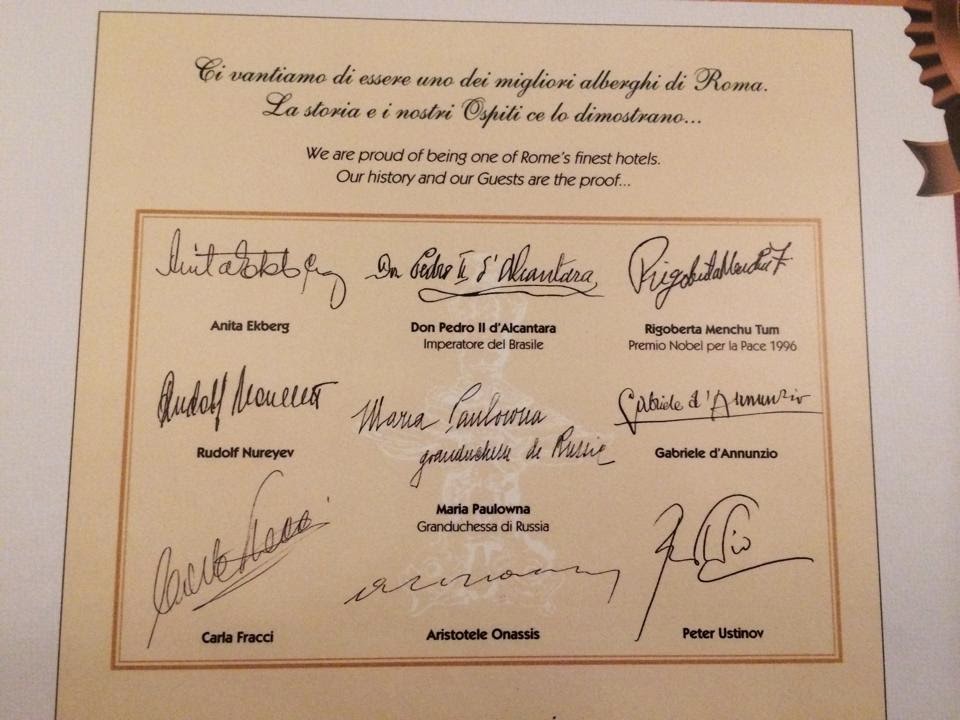 Ci vantiamo di essere uno dei migliori alberghi di Roma.
La storia e i nostri Ospiti ce lo dimostrano...
We are proud of being one of Rome's finest hotels.
Our history and our Guests are the proof...
Anita Ekberg
Don Pedro II d'Alcantara
Rigoberta Menchu T
Anita Ekberg
Don Pedro II d'Alcantara
Imperatore del Brasile
Rigoberta Menchu Tum
Premio Nobel per la Pace 1996
Rudolf
Maria Paulowna
granduchesse de Russie
Gabriele d'Annunzio
Rudolf Nureyev
Maria Paulowna
Granduchessa di Russia
Gabriele d'Annunzio
Carla Fracci
Carla Fracci
Aristotele Onassis
Peter Ustinov